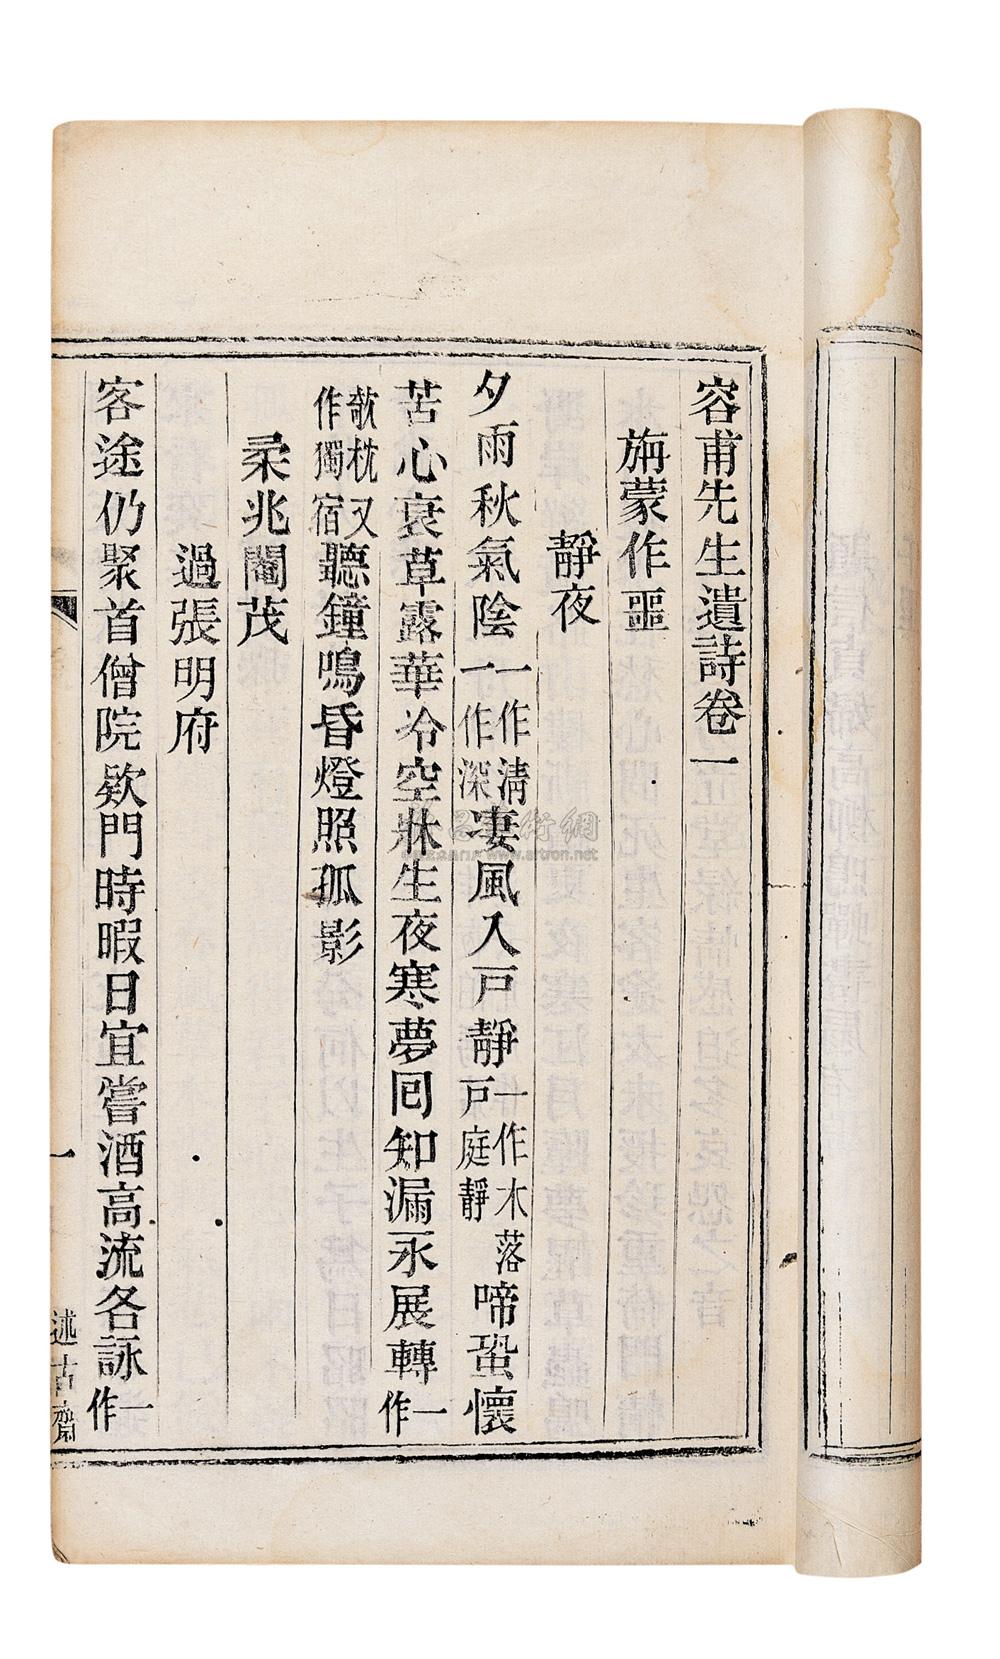 容甫先生遺詩卷一
旃蒙作噩
靜夜
夕雨秋氣陰一作清一作深淒風入戸靜一作木落戸庭靜啼蛩懷
苦心衰草露華冷空牀生夜寒夢囘知漏永展轉一作
欹枕又作獨宿聽鐘鳴昏燈照孤影
柔兆閹茂
過張明府
客途仍聚首僧院欵門時暇日宜嘗酒高流各詠一作
一
述古齋
www.artron.net